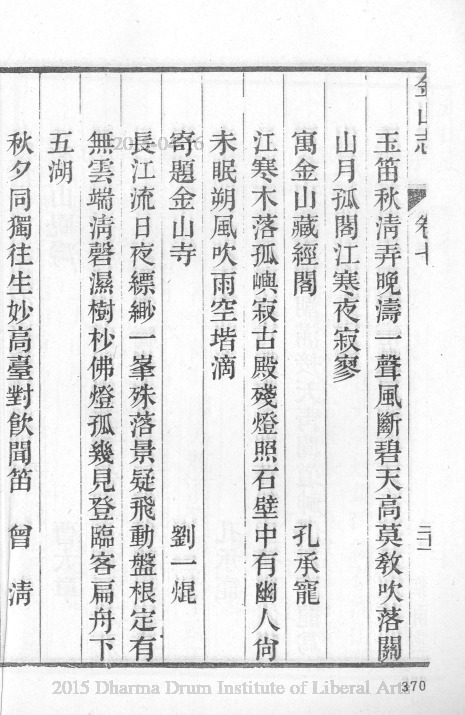 金山志 卷七
玉笛秋淸弄晚濤一聲風斷碧天高莫敎吹落關
山月孤閣江寒夜寂寥
寓金山藏經閣 孔承寵
江寒木落孤嶼寂古殿殘燈照石壁中有幽人尙
未眠朔風吹雨空堦滴
寄題金山寺 劉一焜
長江流日夜縹緲一峯殊落景疑飛動盤根定有
無雲端淸磬濕樹杪佛燈孤幾見登臨客扁舟下
五湖
秋夕同獨往生妙高臺對飮聞笛 曾淸
370
2015 Dharma Drum Institute of Liberal Arts